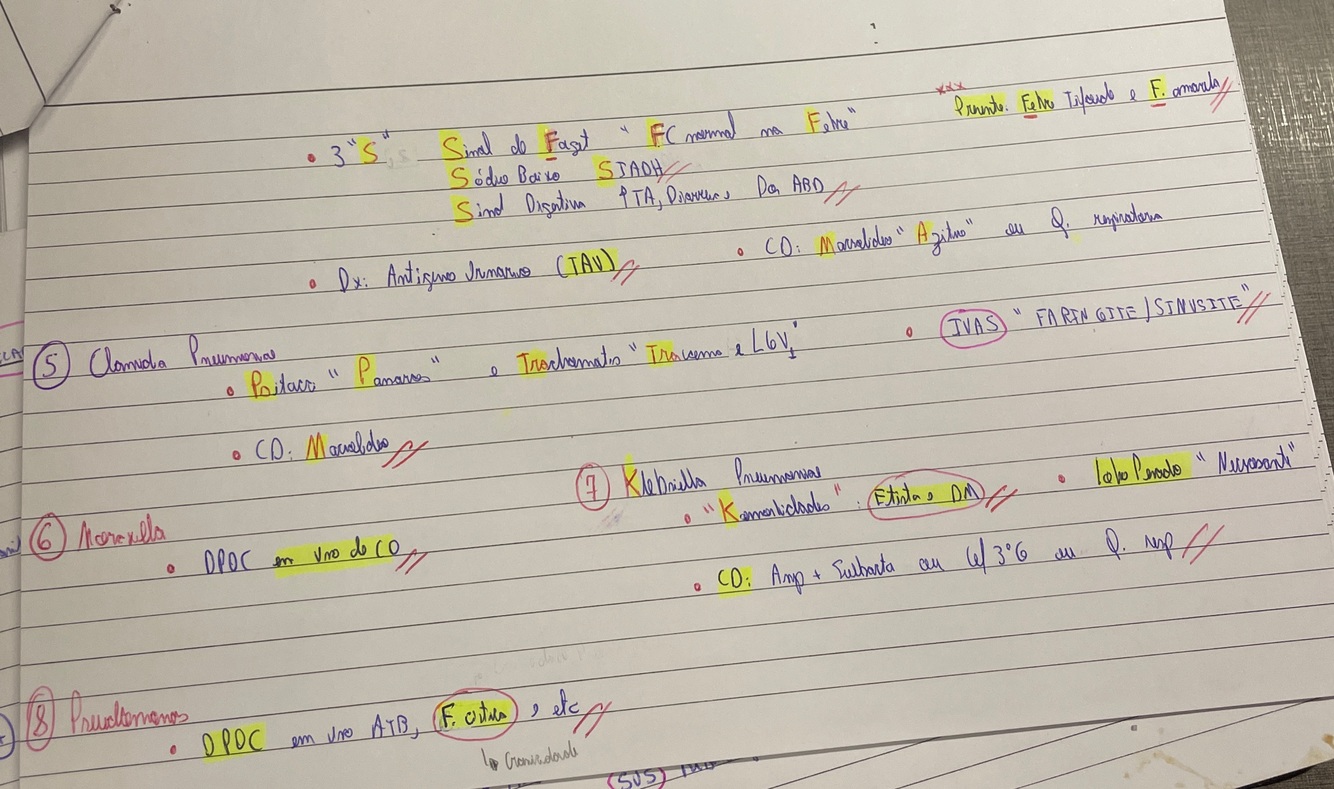 xxx Presente: Febre Tifoide e F. amarela
• 3 "S" Sinal de Faget "FC normal na Febre"
Sódio Baixo SIADH
Sind Digestiva ↑TA, Diarreia, Dor ABD
• Dx: Antígeno Urinário (TAU) • CD: Macrolídeo "Azitro" ou Q. respiratória
⑤ Clamídia Pneumoniae • IVAS "FARINGITE/SINUSITE"
• Psitacci "Pássaros" • Trachomatis "Tracoma e LGV"
• CD: Macrolídeo
⑥ Moraxella
• DPOC em uso de CO
⑦ Klebsiella Pneumoniae
• "Komorbidades": Etilista e DM • lobo Pesado "Necrosante"
• CD: Amp + Sulbacta ou Cef 3ºG ou Q. resp
⑧ Pseudomonas
• DPOC em uso ATB, F. cística, etc
↳ Cronicidade
(SUS)